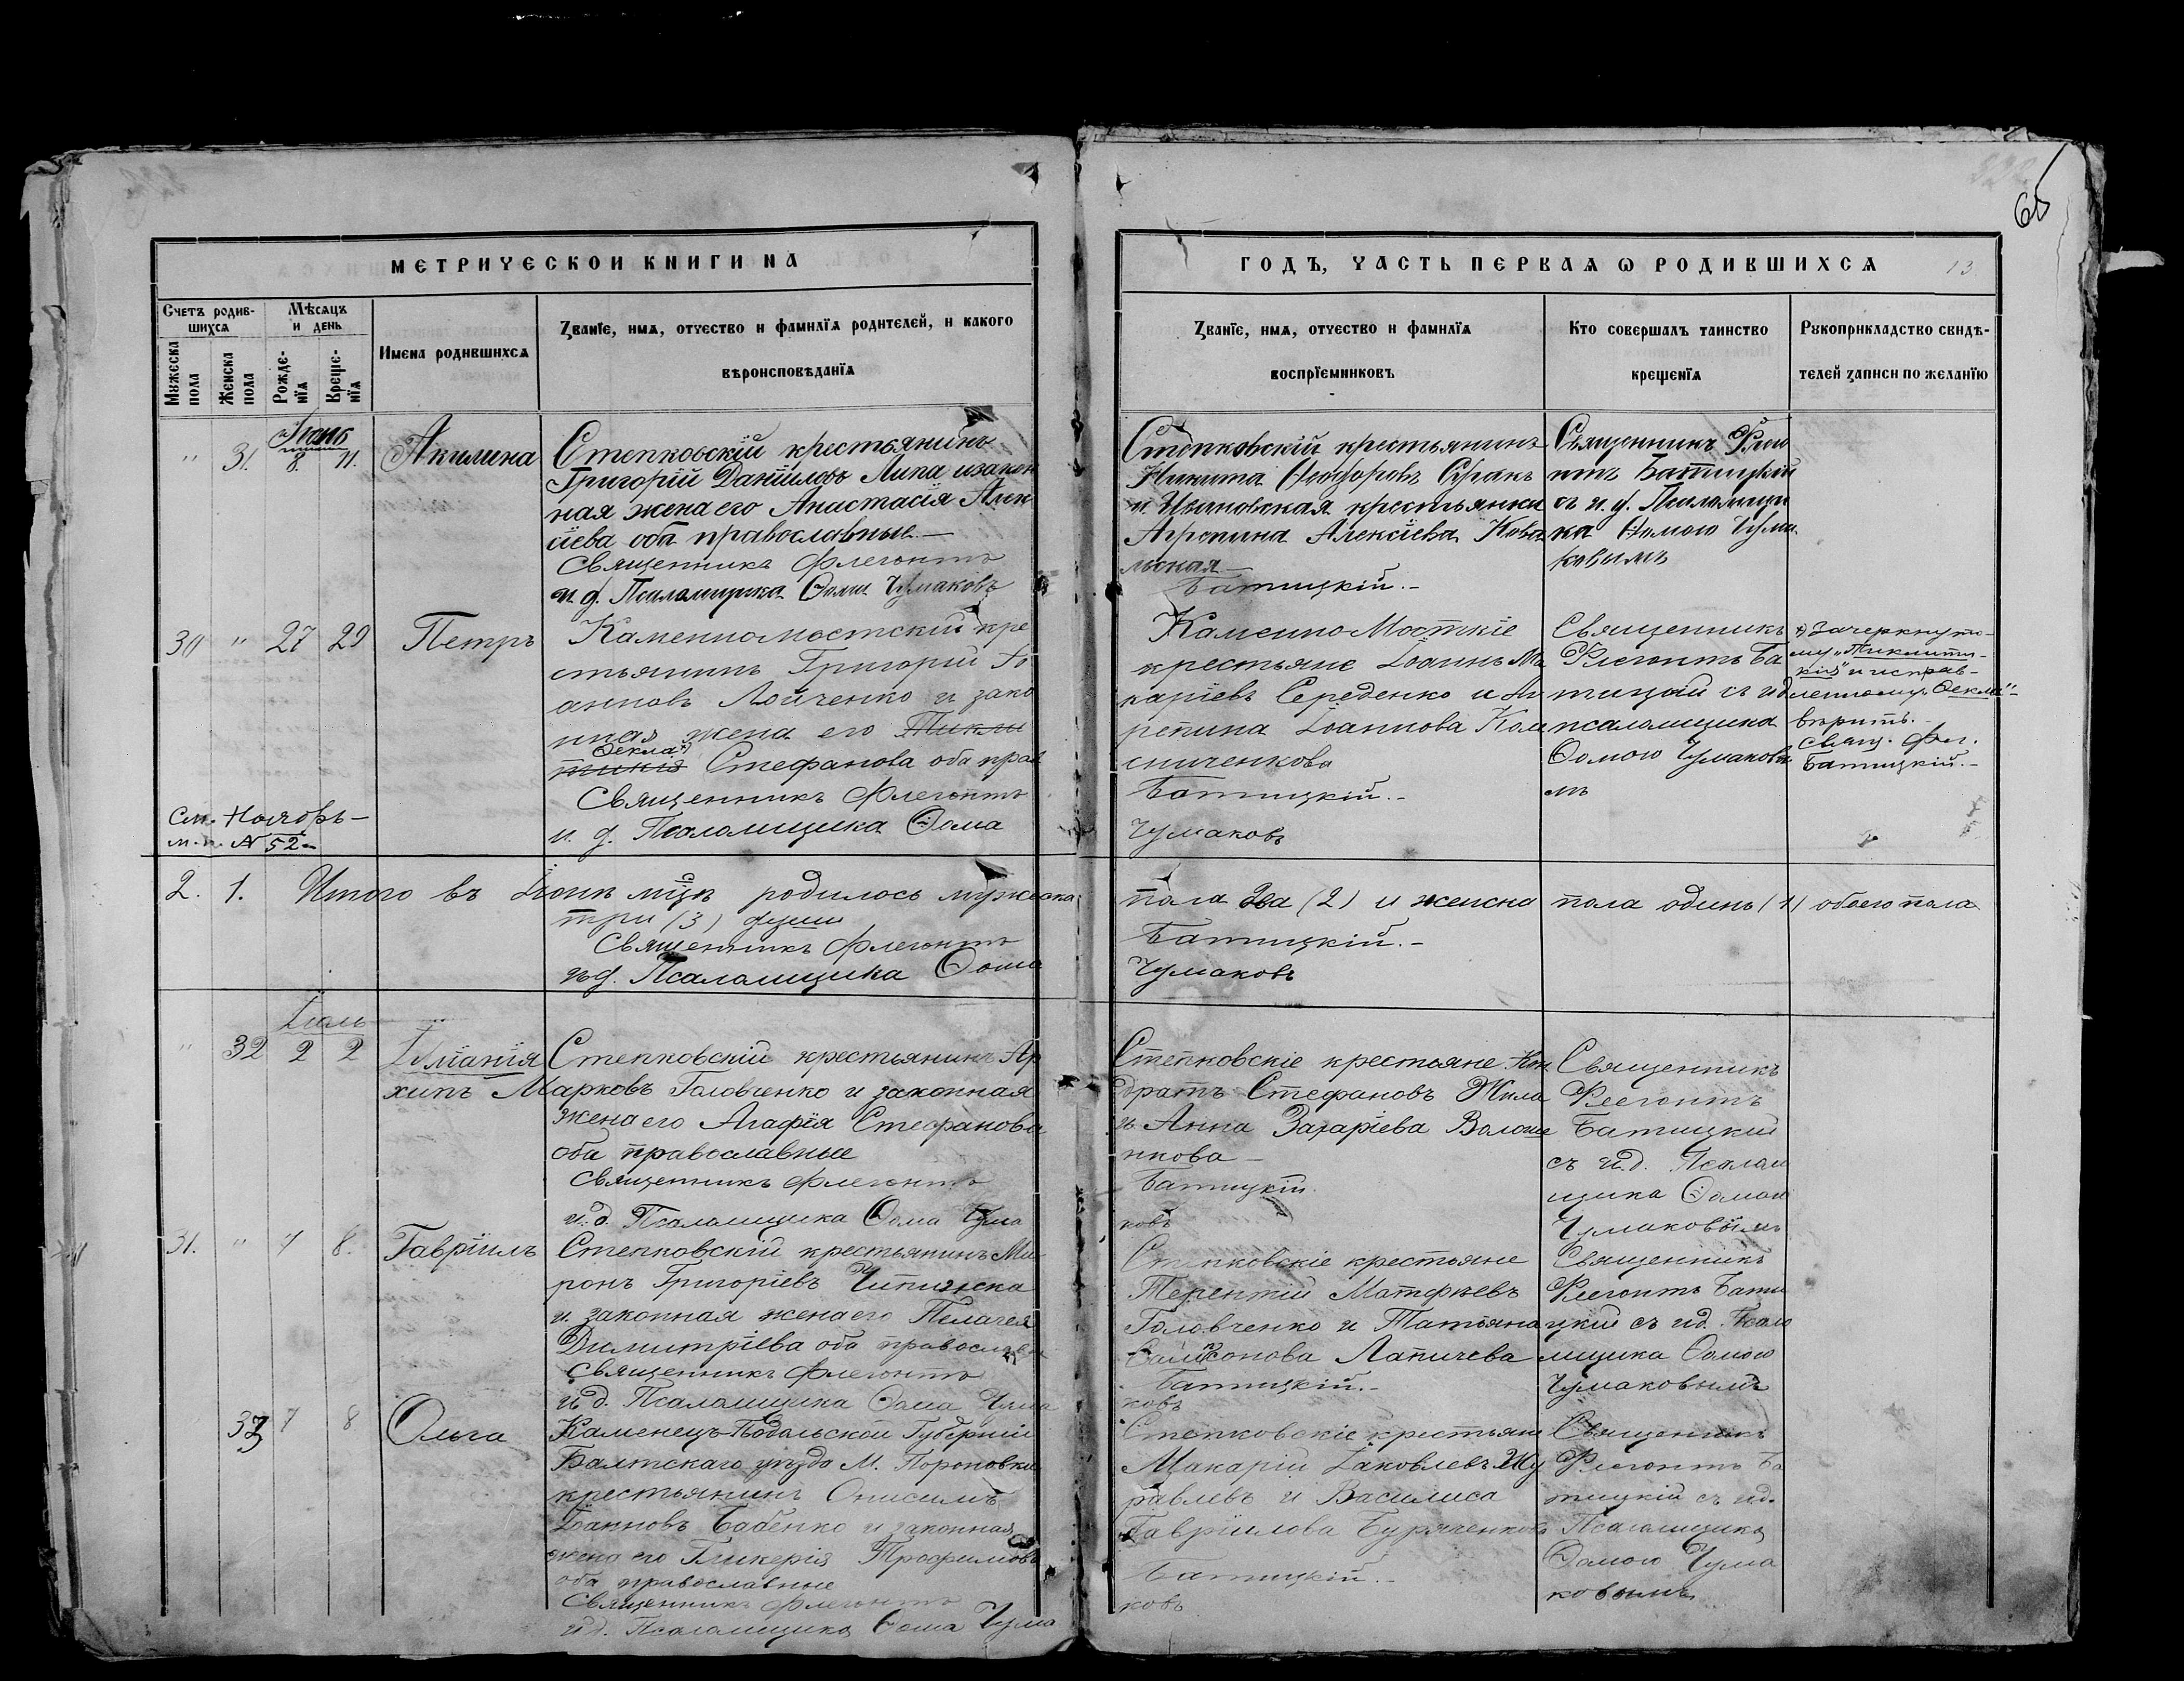 65
МЕТРИЧЕСКОЙ КНИГИ НА
ГОДЪ, ЧАСТЬ ПЕРВАЯ Ѡ РОДИВШИХСЯ 13
Счетъ родив-
шихся
Мѣсяцъ
и день
Мужеска
пола
Женска
пола
Рожде-
нія
Креще-
нія
Имена родившихся
Званіе, имя, отчество и фамилія родителей, и какого
вѣроисповѣданія
Званіе, имя, отчество и фамилія
воспріемниковъ
Кто совершалъ таинство
крещенія
Рукоприкладство свидѣ-
телей записи по желанію
Іюнь
" 31. 8. 11. Акилина
Степковскій крестьянинъ
Григорій Даніиловъ Липа изакон
ная жена его Анастасія Алек
сіева оба православные.—
Священникъ Флегонтъ
и. д. Псаломщика Ѳома Чумаковъ
Степковскій крестьянинъ
Никита Ѳеодоровъ
и Ивановская крестьянка
Агрепина Алексіева Кова
льская—
Батицкій.-
Священникъ Флего
нтъ Батицкій
съ и. д. Псаломщи
ка Ѳомою Чума
ковымъ
30 " 27 29 Петръ
Каменномостскій кре
стьянинъ Григорій Іо
анновъ Лойченко и зако
нная жена его Тикли
Ѳекла*)
тикія Стефанова оба прав
Священникъ Флегонтъ
и. д. Псаломщика Ѳома
См. Ноябрь—
м. п. № 52-
Каменно Мосткіе
крестьяне Іоаннъ Ма
каріевъ Середенко и Аг
репина Іоаннова Коле
сниченкова
Батицкій.-
Чумаковъ
Священникъ
Флегонтъ Ба
тицкій съ ид
псаломщика
Ѳомою Чумаковы
мъ
*) Зачеркнуто-
му
кія" и исправ-
ленному "Ѳекла"-
вѣрить.-
Свящ. Фл.
Батицкій.-
2. 1. Итого въ Іюнѣ мцѣ родилось мужеска
три (3) души
Священникъ Флегонтъ
ид. Псаломщика Ѳома
пола два (2) и женска пола одинъ (1) обоего пола
Батицкій.-
Чумаковъ
Іюль
" 32 2 2 Іуліанія
Степковскій крестьянинъ Ар
хипъ Марковъ Головченко и законная
жена его Агафія Стефанова
оба православные
Священникъ Флегонтъ
и. д. Псаломщика Ѳома Чума
Степковскіе крестьяне Кон
дратъ Стефановъ Жила
и Анна Захаріева Волоше
нкова—
Батицкій
ковъ
Священникъ
Флегонтъ
Батицкій
съ и. д. Псалом
щика Ѳомою
Чумаковымъ
31. " 7 8. Гавріилъ
Степковскій крестьянинъ Ми
ронъ Григоріевъ
и законная жена его Пелагея
Димитріева оба православн
Священникъ Флегонтъ
и д. Псаломщика Ѳома Чума
Степковскіе крестьяне
Терентій Матфѣевъ
Головченко и Татьяна
Самсонова Лапичева
Батицкій.-
ковъ
Священникъ
Флегонтъ Бати
цкій съ ид. Псало
мщика Ѳомою
Чумаковымъ
33 7 8 Ольга
Каменецъ-Подольской Губерніи
Балтскаго уѣзда М.
крестьянинъ Онисимъ
Іоанновъ Бабенко и законная
жена его Гликерія Трофимова
оба православные
Священникъ Флегонтъ
и д. Псаломщика Ѳома Чума
Степковскіе крестьяне
Макарій Іаковлевъ Жу
равлевъ и Василиса
Гавріилова Буряченкова
Батицкій.-
ковъ
Священникъ
Флегонтъ Ба
тицкій съ ид.
Псаломщика
Ѳомою Чума
ковымъ